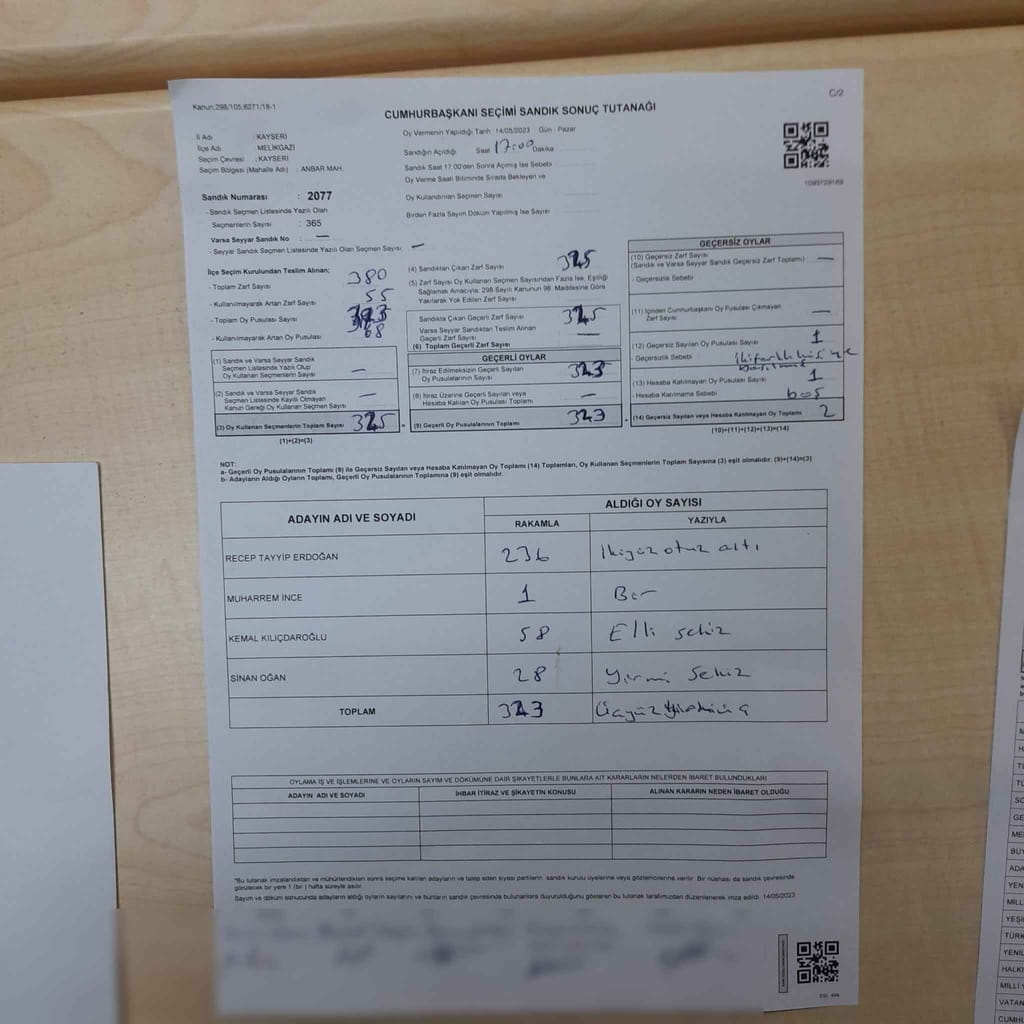 Kanun:298/105;6271/18-1
C/2
CUMHURBAŞKANI SEÇİMİ SANDIK SONUÇ TUTANAĞI
İl Adı : KAYSERİ
İlçe Adı : MELİKGAZİ
Seçim Çevresi : KAYSERİ
Seçim Bölgesi (Mahalle Adı) : ANBAR MAH.
Oy Vermenin Yapıldığı Tarih : 14/05/2023 Gün : Pazar
Sandığın Açıldığı Saat 17:00 Dakika
Sandık Saat 17:00'den Sonra Açılmış İse Sebebi
Oy Verme Saati Bitiminde Sırada Bekleyen ve
Oy Kullandırılan Seçmen Sayısı
Birden Fazla Sayım Döküm Yapılmış İse Sayısı
1093729169
Sandık Numarası : 2077
- Sandık Seçmen Listesinde Yazılı Olan
Seçmenlerin Sayısı : 365
Varsa Seyyar Sandık No : —
- Seyyar Sandık Seçmen Listesinde Yazılı Olan Seçmen Sayısı : —
İlçe Seçim Kurulundan Teslim Alınan;
- Toplam Zarf Sayısı 380
- Kullanılmayarak Artan Zarf Sayısı 55
- Toplam Oy Pusulası Sayısı
- Kullanılmayarak Artan Oy Pusulası 68
(1) Sandık ve Varsa Seyyar Sandık
Seçmen Listesinde Yazılı Olup
Oy Kullanan Seçmenlerin Sayısı —
(2) Sandık ve Varsa Seyyar Sandık
Seçmen Listesinde Kayıtlı Olmayan
Kanun Gereği Oy Kullanan Seçmen Sayısı —
(3) Oy Kullanan Seçmenlerin Toplam Sayısı 325
(1)+(2)=(3)
(4) Sandıktan Çıkan Zarf Sayısı 325
(5) Zarf Sayısı Oy Kullanan Seçmen Sayısından Fazla İse, Eşitliği
Sağlamak Amacıyla; 298 Sayılı Kanunun 98. Maddesine Göre
Yakılarak Yok Edilen Zarf Sayısı
Sandıkta Çıkan Geçerli Zarf Sayısı 325
Varsa Seyyar Sandıktan Teslim Alınan
Geçerli Zarf Sayısı —
(6) Toplam Geçerli Zarf Sayısı
GEÇERLİ OYLAR
(7) İtiraz Edilmeksizin Geçerli Sayılan
Oy Pusulalarının Sayısı 323
(8) İtiraz Üzerine Geçerli Sayılan veya
Hesaba Katılan Oy Pusulası Toplamı —
= (9) Geçerli Oy Pusulalarının Toplamı 323
GEÇERSİZ OYLAR
(10) Geçersiz Zarf Sayısı
(Sandık ve Varsa Seyyar Sandık Geçersiz Zarf Toplamı) —
- Geçersizlik Sebebi
(11) İçinden Cumhurbaşkanı Oy Pusulası Çıkmayan
Zarf Sayısı —
(12) Geçersiz Sayılan Oy Pusulası Sayısı 1
- Geçersizlik Sebebi
(13) Hesaba Katılmayan Oy Pusulası Sayısı 1
- Hesaba Katılmama Sebebi boş
+ (14) Geçersiz Sayılan veya Hesaba Katılmayan Oy Toplamı 2
(10)+(11)+(12)+(13)=(14)
NOT:
a- Geçerli Oy Pusulalarının Toplamı (9) ile Geçersiz Sayılan veya Hesaba Katılmayan Oy Toplamı (14) Toplamları, Oy Kullanan Seçmenlerin Toplam Sayısına (3) eşit olmalıdır. (9)+(14)=(3)
b- Adayların Aldığı Oyların Toplamı, Geçerli Oy Pusulalarının Toplamına (9) eşit olmalıdır.
ADAYIN ADI VE SOYADI ALDIĞI OY SAYISI
RAKAMLA YAZIYLA
RECEP TAYYİP ERDOĞAN 236 İkiyüz otuz altı
MUHARREM İNCE 1 Bir
KEMAL KILIÇDAROĞLU 58 Elli sekiz
SİNAN OĞAN 28 Yirmi Sekiz
TOPLAM 323
OYLAMA İŞ VE İŞLEMLERİNE VE OYLARIN SAYIM VE DÖKÜMÜNE DAİR ŞİKAYETLERLE BUNLARA AİT KARARLARIN NELERDEN İBARET BULUNDUKLARI
ADAYIN ADI VE SOYADI İHBAR İTİRAZ VE ŞİKAYETİN KONUSU ALINAN KARARIN NEDEN İBARET OLDUĞU
*Bu tutanak imzalandıktan ve mühürlendikten sonra seçime katılan adayların ve talep eden siyasi partilerin sandık kurulu üyelerine veya gözlemcilerine verilir. Bir nüshası da sandık çevresinde
görülecek bir yere 1 (bir) hafta süreyle asılır.
Sayım ve döküm sonucunda adayların aldığı oyların sayılarını ve bunların sandık çevresinde bulunanlara duyurulduğunu gösteren bu tutanak tarafımızdan düzenlenerek imza edildi. 14/05/2023